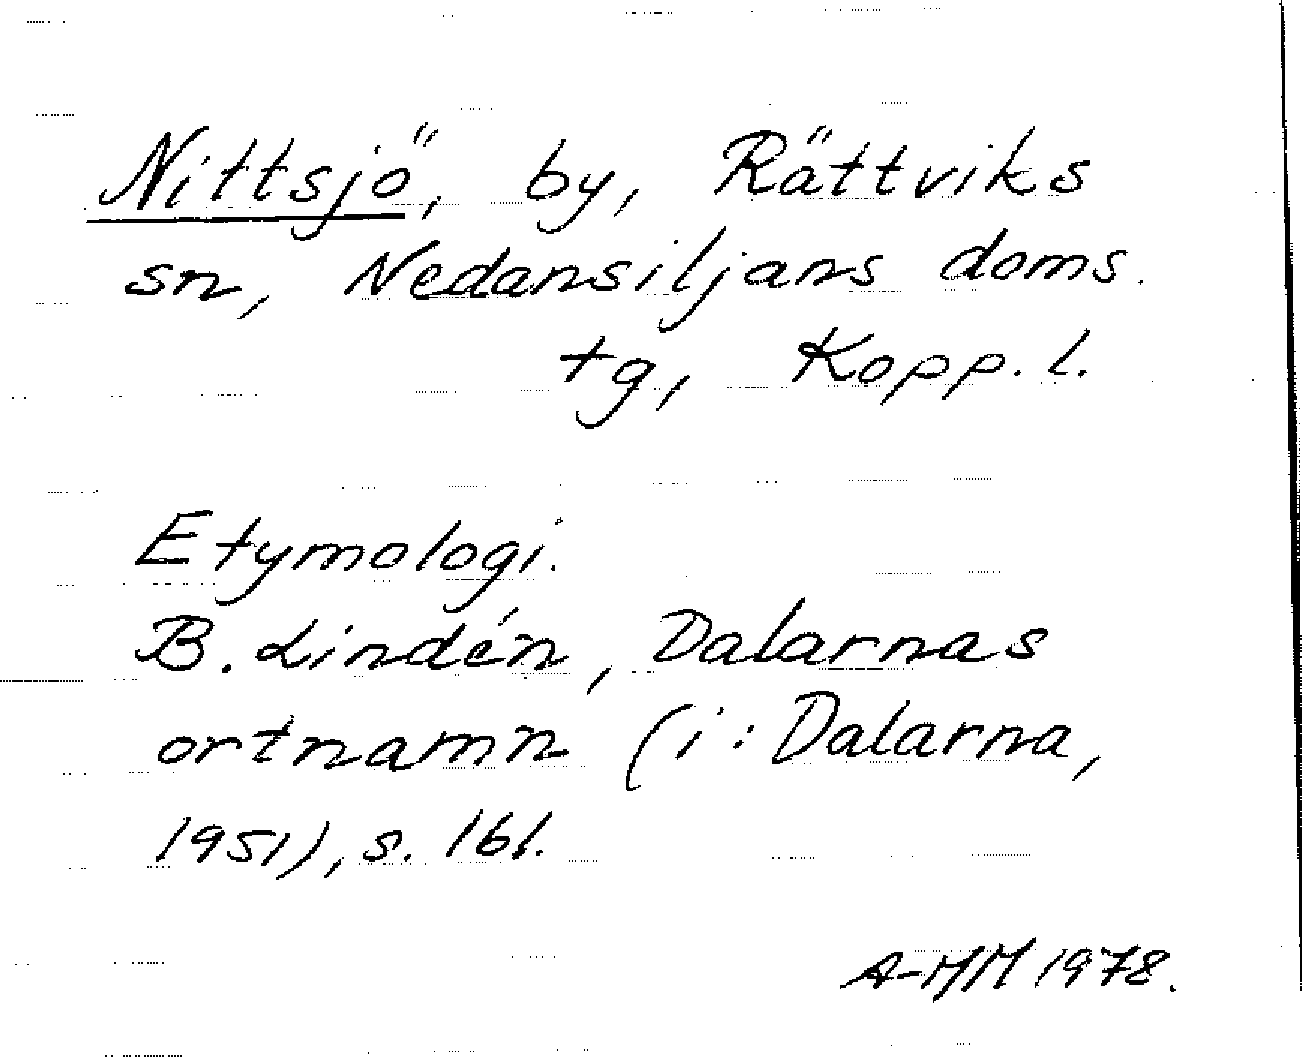 Nittsjö, by, Rättviks
sn, Nedansiljans doms.
tg, Kopp. l.
Etymologi.
B. Lindén, Dalarnas
ortnamn (i: Dalarna,
1951), s. 161.
A-MM 1978.